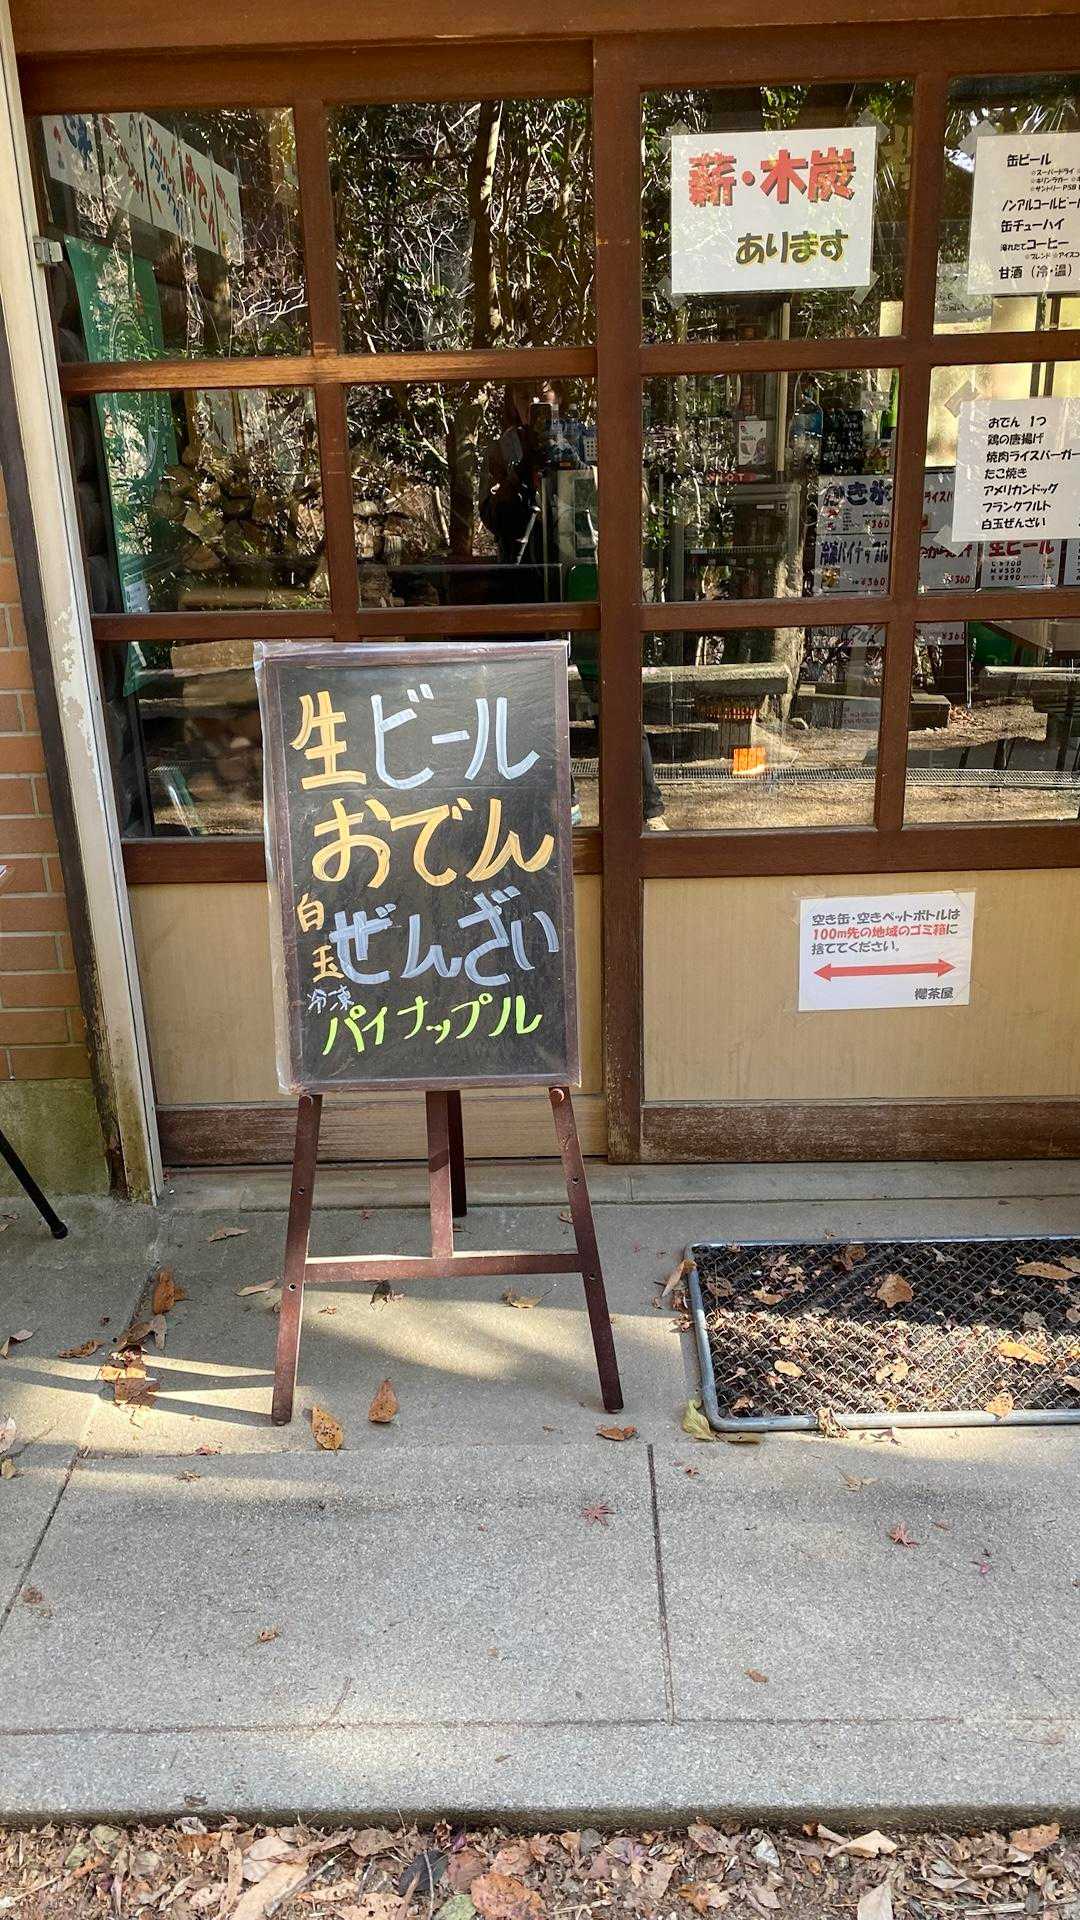 薪・木炭
あります
缶ビール
☆スーパードライ
☆キリンラガー
☆サントリー PSB
ノンアルコールビール
缶チューハイ
淹れたてコーヒー
☆ブレンド ☆アイスコ
甘酒（冷・温）
おでん 1つ
鶏の唐揚げ
焼肉ライスバーガー
たこ焼き
アメリカンドッグ
フランクフルト
白玉ぜんざい
き氷
¥360
冷凍パイナップル
¥360
ライスバ
から
¥360
生ビール
M ¥550
S ¥390
¥360
生ビール
おでん
白玉ぜんざい
冷凍
パイナップル
空き缶・空きペットボトルは
100m先の地域のゴミ箱に
捨ててください。
櫻茶屋